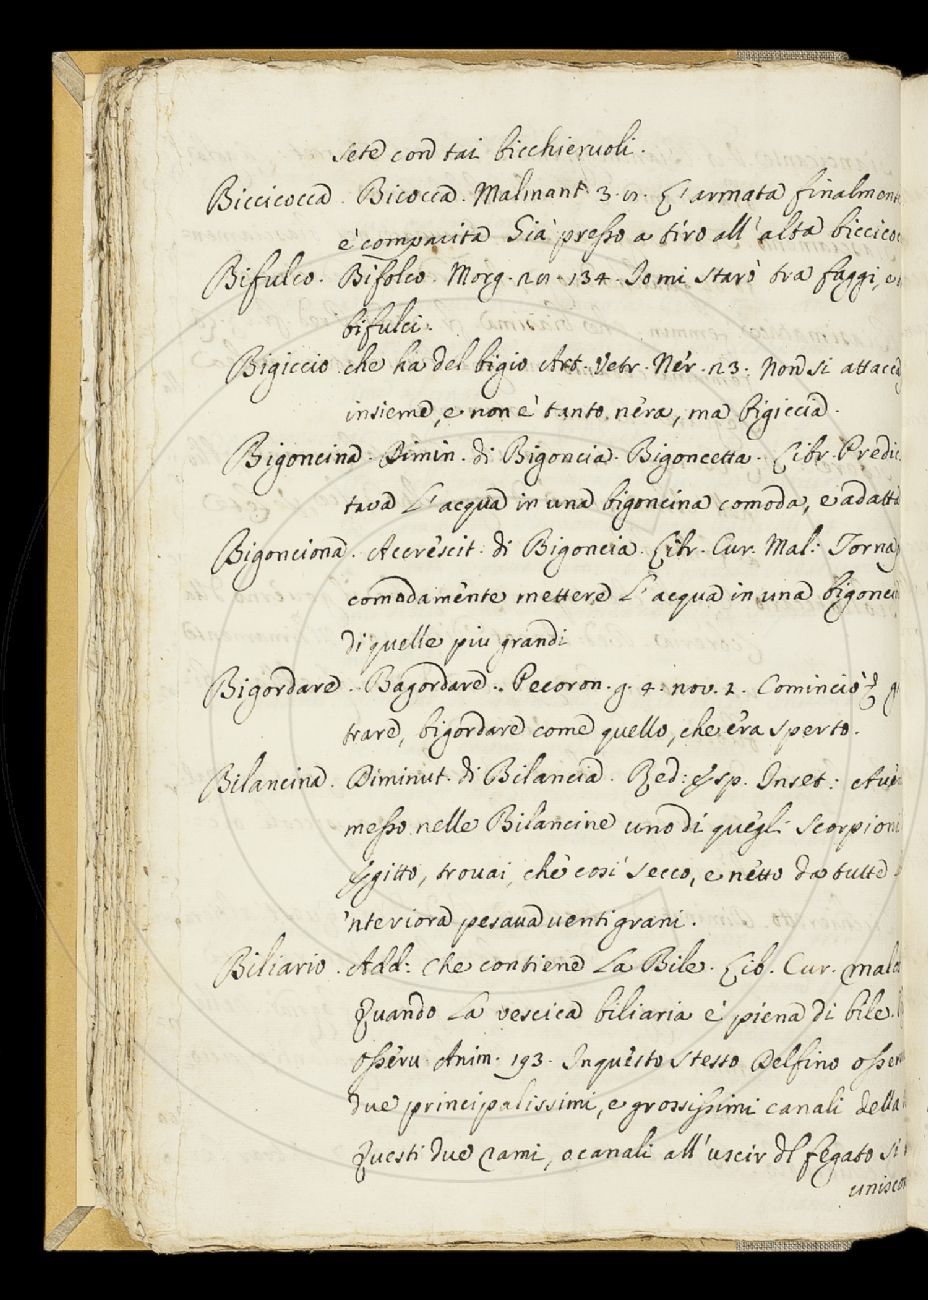 sete con tai bicchieruoli.
Biccicocca. Bicocca. Malmant. 3. L'armata finalment
è comparita Già presso a tiro all'alta biccico
Bifulco. Bifolco. Morg. 134. Io mi starò tra faggi, e
bifulci.
Bigiccio che ha del bigio Art. Vetr. Ner. 23. Non si attacca
insieme, e non è tanto nera, ma bigiccia.
Bigoncina. Dimin. di Bigoncia. Bigoncetta. Libr. Predic
tava L'acqua in una bigoncina comoda, e adatta
Bigonciona. Accrescit. di Bigoncia. Libr. Cur. Mal: Torna
comodamente mettere L'acqua in una bigonci
di quelle piu grandi
Bigordare. Bagordare. Pecoron. g. 4. nov. 2. Cominciò
trare, bigordare come quello, che era sperto.
Bilancina. Diminut. di Bilancia. Red: Esp. Inset: Ave
messo nelle Bilancine uno di quegli Scorpioni
Egitto, trovai, che così secco, e netto da tutte
'nteriora pesava venti grani.
Biliario. Add: Che contiene La Bile. Lib. Cur. mala
Quando La vescica biliaria è piena di bile.
Osserv. Anim. 193. In questo stesso Delfino osser
due principalissimi, e grossissimi canali della
Questi due rami, o canali all'uscir del fegato si
uniscon